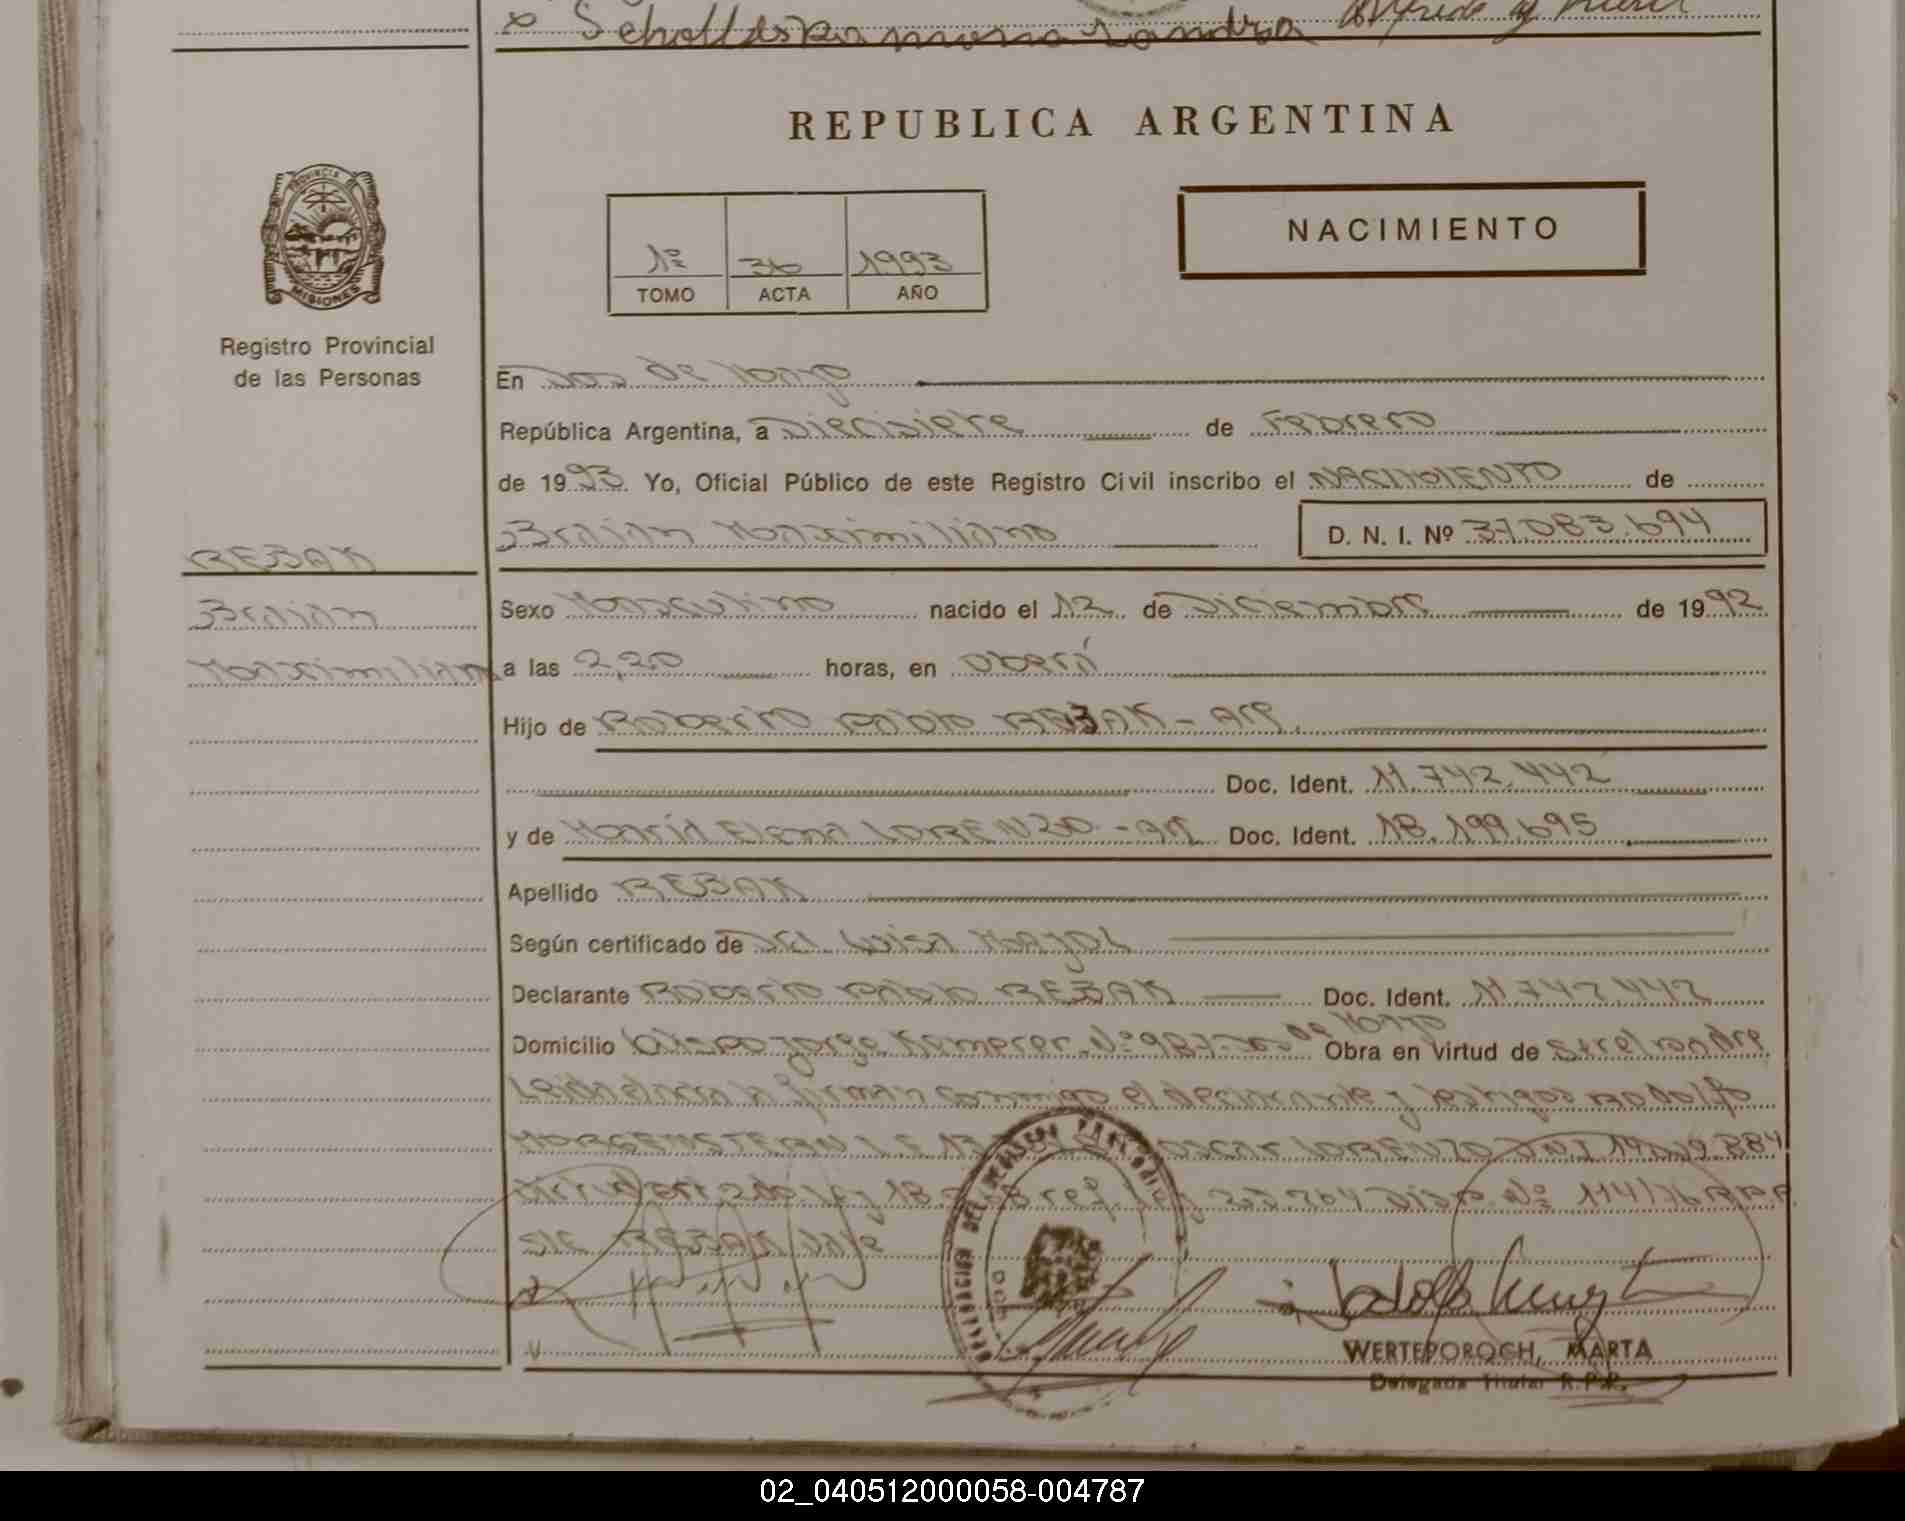 REPUBLICA ARGENTINA
PROVINCIA DE
MISIONES
NACIMIENTO
1º 36 1993
TOMO ACTA AÑO
Registro Provincial
de las Personas
En Dos de Mayo
República Argentina, a Diecisiete de Febrero
de 1993. Yo, Oficial Público de este Registro Civil inscribo el NACIMIENTO de
Braian Maximiliano D. N. I. Nº 37.083.694
REBAK
Braian
Maximiliano
Sexo Masculino nacido el 12 de Diciembre de 1992
a las 2,20 horas, en Oberá
Hijo de Roberto Pablo REBAK - Arg.
Doc. Ident. 11.742.442
y de María Elena LORENZO - Arg Doc. Ident. 18.199.695
Apellido REBAK
Según certificado de Dra Luisa MAYOL
Declarante Roberto Pablo REBAK Doc. Ident. 11742442
Domicilio Obispo Jorge Kemerer Nº 987-Dos de Mayo Obra en virtud de ser el padre
Leida el acta la firman conmigo el declarante y testigos Rodolfo
MORGENSTERN L.E 13 OSCAR LORENZO DNI
Ley 18. ref. Ley Disp. Nº 114/76 RPP
REBAK Vale
WERTEPOROCH, MARTA
Delegada Titular R.P.P.
02_040512000058-004787